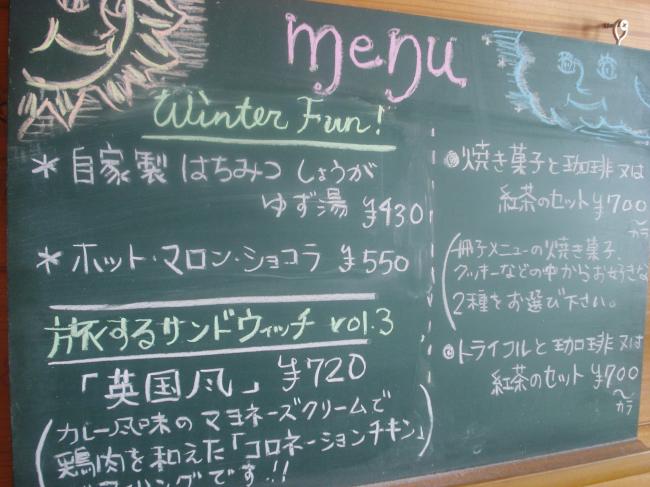 menu
Winter Fun!
* 自家製 はちみつ しょうが
ゆず湯 ¥430
* ホット・マロン・ショコラ ¥550
旅するサンドウィッチ vol.3
「英国風」 ¥720
(カレー風味のマヨネーズクリームで
鶏肉を和えた「コロネーションチキン」
です!!
焼き菓子と珈琲又は
紅茶のセット ¥700
〜カラ
(冊子メニューの焼き菓子、
クッキーなどの中からお好きな
2種をお選び下さい。
トライフルと珈琲又は
紅茶のセット ¥700
〜カラ